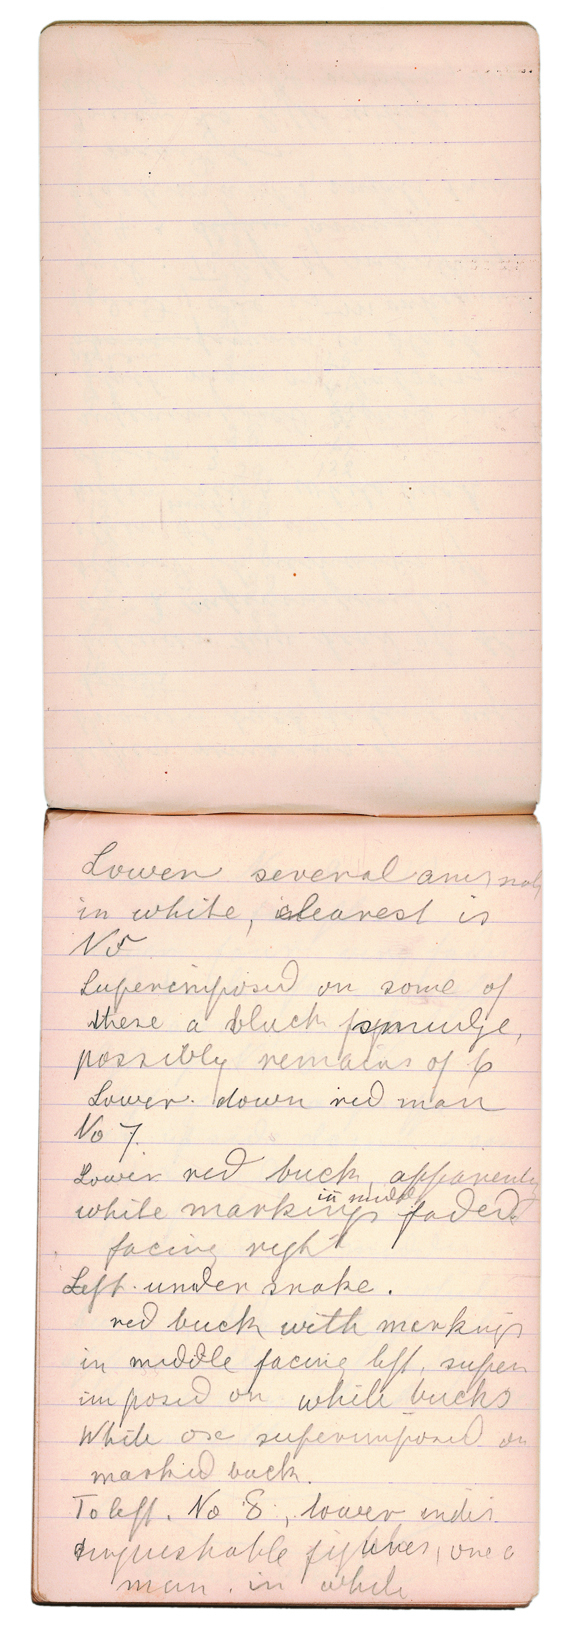 Lower several animals
in white, clearest is
No 5
Superimposed on some of
these a black smudge,
possibly remains of 6
Lower. down red man
No 7.
Lower red buck, apparently
white markings in middle faded
facing right
Left under snake.
red buck with markings
in middle facing left, super
imposed on white bucks
White superimposed on
marked buck.
To left. No 8, lower indis
tinguishable figures, one a
man. in white